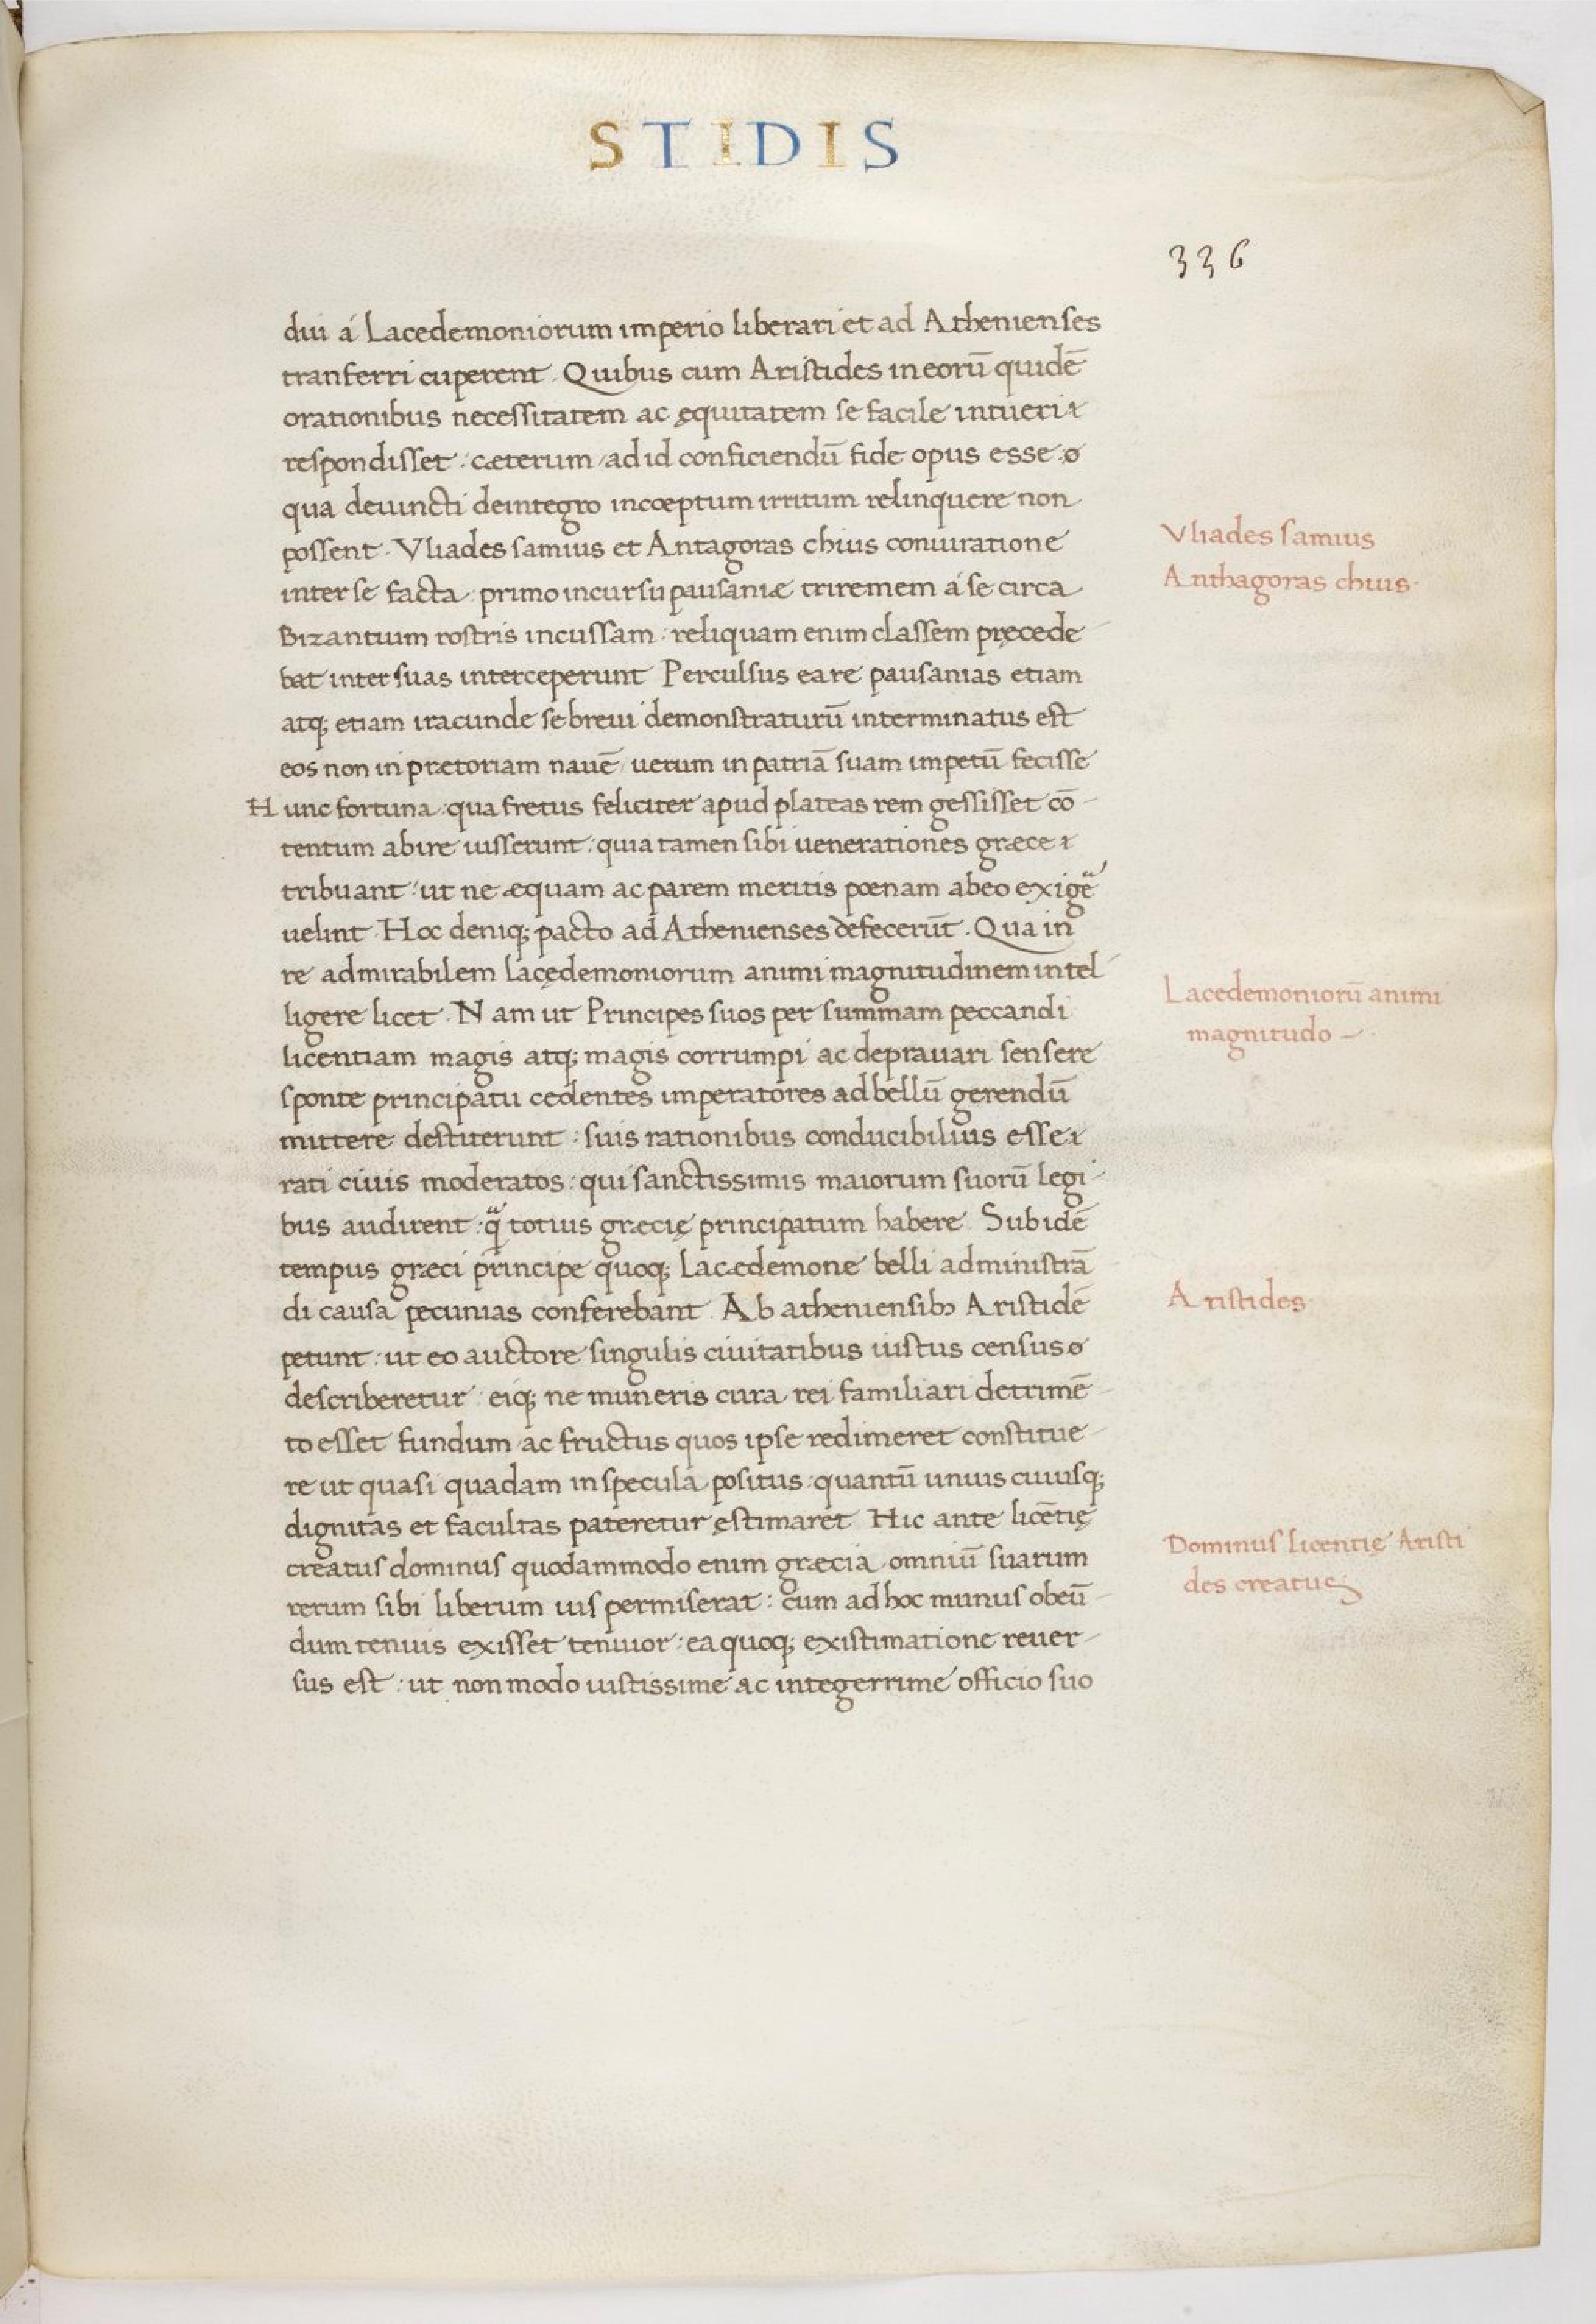 STIDIS
336
dui á Lacedemoniorum imperio liberari et ad Athenienses
tranferri cuperent. Quibus cum Aristides in eorū quidē
orationibus necessitatem ac ęquitatem se facile intueri
respondisset: cæterum, ad id conficiendū fide opus esse
qua deuincti deintegro incœptum irritum relinquere non
possent. Vliades samius et Antagoras chius coniuratione
inter se facta: primo incursu pausaniæ triremem á se circa
Bizantium rostris incussam: reliquam enim classem pręcede
bat inter suas interceperunt Perculsus ea re pausanias etiam
atq; etiam iracunde se breui demonstraturū interminatus est
eos non in prætoriam nauē, uerum in patriā suam impetū fecisse
Hunc fortuna: qua fretus feliciter apud plateas rem gessisset cō
tentum abire iusserunt: quia tamen sibi uenerationes græce
tribuant: ut ne æquam ac parem meritis pœnam ab eo exigē
uelint. Hoc deniq; pacto ad Athenienses defecerūt. Qua in
re admirabilem lacędemoniorum animi magnitudinem intel
ligere licet. Nam ut Principes suos per summam peccandi
licentiam magis atq; magis corrumpi ac deprauari sensere
sponte principatu cedentes imperatores ad bellū gerendū
mittere destiterunt: suis rationibus conducibilius esse
rati ciuis moderatos: qui sanctissimis maiorum suorū legi
bus audirent: q̄ totius græcię principatum habere. Sub idē
tempus græci principe quoq; Lacædemone belli administrā
di causa pecunias conferebant. Ab atheniensibꝫ Aristidē
petunt: ut eo auctore singulis ciuitatibus iustus census
describeretur: eiq; ne muneris cura rei familiari detrimē
to esset fundum ac fructus quos ipse redimeret constitue
re ut quasi quadam in specula positus: quantū unius cuiusq;
dignitas et facultas pateretur ęstimaret Hic ante licētię
creatus dominus quodammodo enim græcia omniū suarum
rerum sibi liberum ius permiserat: cum ad hoc munus obeū
dum tenuis exisset tenuior: ea quoq; existimatione reuer
sus est: ut non modo iustissime ac integerrime officio suo
Vliades samius
Anthagoras chius
Lacedemoniorū animi
magnitudo
Aristides
Dominus licentię Aristi
des creatus